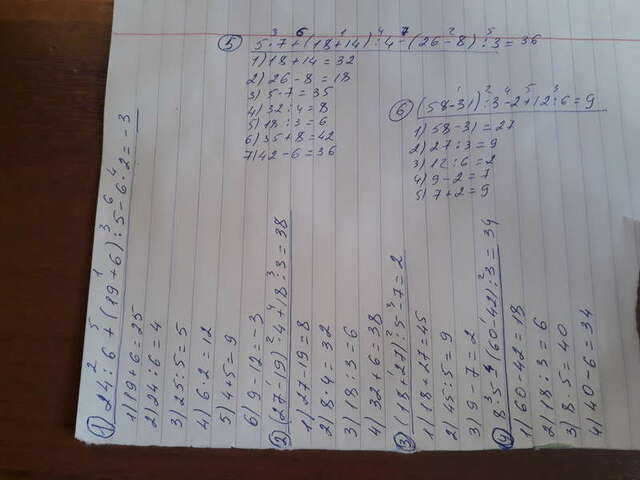 2 5 1 3 6 4
1) 24:6+(19+6):5-6·2=-3
1) 19+6=25
2) 24:6=4
3) 25:5=5
4) 6·2=12
5) 4+5=9
6) 9-12=-3
1 2 4 3
2) (27-19)·4+18:3=38
1) 27-19=8
2) 8·4=32
3) 18:3=6
4) 32+6=38
1 2 3
3) (18+27):5-7=2
1) 18+27=45
2) 45:5=9
3) 9-7=2
3 4 1 2
4) 8·5-(60-42):3=34
1) 60-42=18
2) 18:3=6
3) 8·5=40
4) 40-6=34
3 6 1 4 7 2 5
5) 5·7+(18+14):4-(26-8):3=36
1) 18+14=32
2) 26-8=18
3) 5·7=35
4) 32:4=8
5) 18:3=6
6) 35+8=42
7) 42-6=36
1 2 4 5 3
6) (58-31):3-2+12:6=9
1) 58-31=27
2) 27:3=9
3) 12:6=2
4) 9-2=7
5) 7+2=9